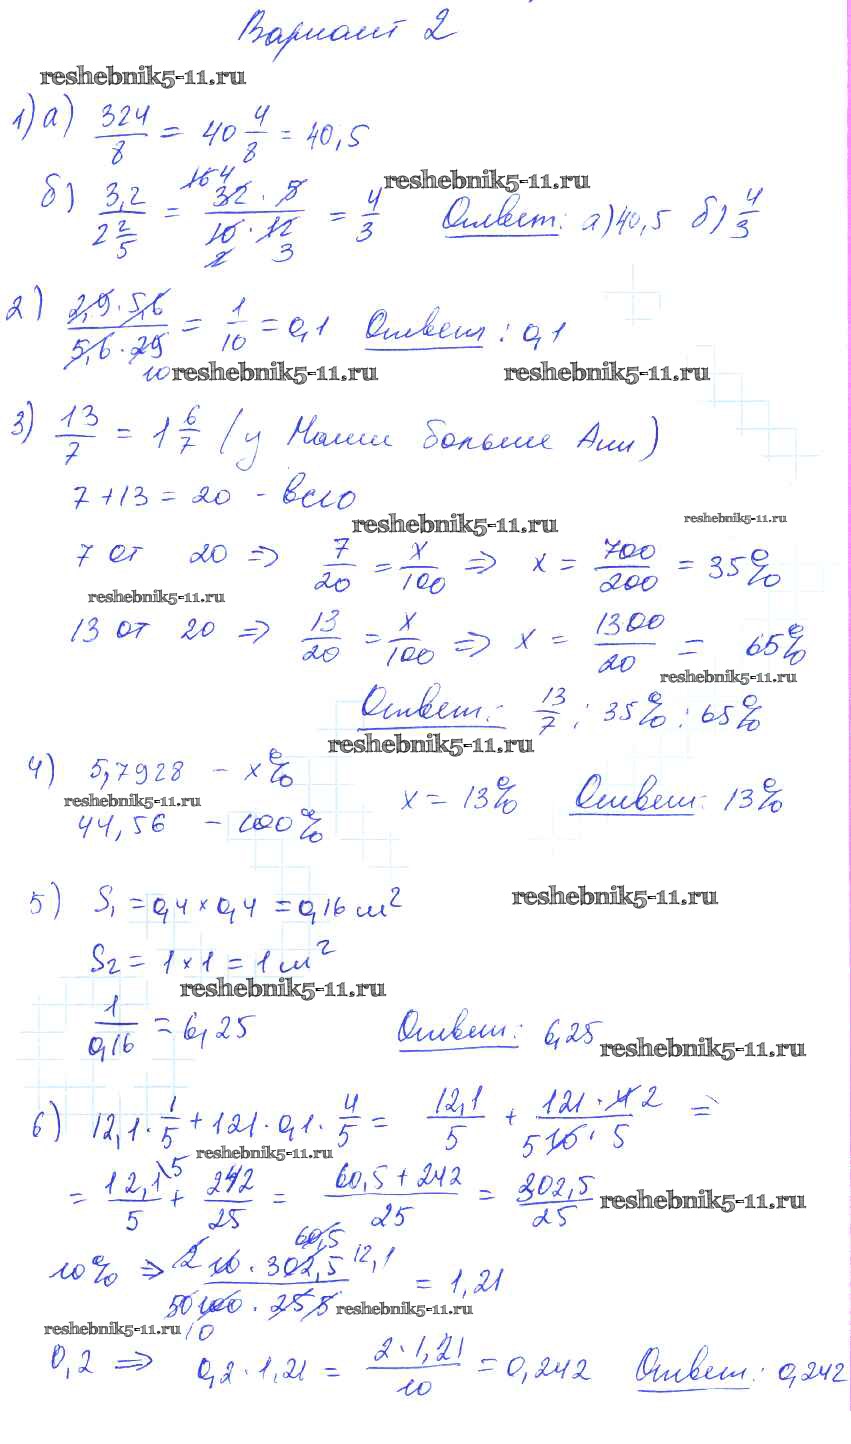 Вариант 2
reshebnik5-11.ru
1) а) 324/8 = 40 4/8 = 40,5
reshebnik5-11.ru
б) 3,2 / 2 2/5 = 32 · 5 / 10 · 12 = 4/3 Ответ: а) 40,5 б) 4/3
2) 2,9 · 5,6 / 5,6 · 29 = 1/10 = 0,1 Ответ: 0,1
10
reshebnik5-11.ru reshebnik5-11.ru
3) 13/7 = 1 6/7 (у Маши больше Ани)
7 + 13 = 20 - всего
reshebnik5-11.ru reshebnik5-11.ru
7 от 20 => 7/20 = x/100 => x = 700/200 = 35%
reshebnik5-11.ru
13 от 20 => 13/20 = x/100 => x = 1300/20 = 65%
reshebnik5-11.ru
Ответ: 13/7 ; 35% ; 65%
reshebnik5-11.ru
4) 5,7928 - x%
reshebnik5-11.ru
44,56 - 100%
x = 13% Ответ: 13%
reshebnik5-11.ru
5) S₁ = 0,4 × 0,4 = 0,16 м²
S₂ = 1 × 1 = 1 м²
reshebnik5-11.ru
1/0,16 = 6,25 Ответ: 6,25
reshebnik5-11.ru
6) 12,1 · 1/5 + 121 · 0,1 · 4/5 = 12,1/5 + 121 · 4 2 / 5 10 · 5 =
reshebnik5-11.ru
= 12,1\5 / 5 + 242/25 = 60,5 + 242 / 25 = 302,5/25
reshebnik5-11.ru
10% => 2 10 · 302,5 60,5 12,1 / 50 100 · 25 5 = 1,21
reshebnik5-11.ru
reshebnik5-11.ru 10
0,2 => 0,2 · 1,21 = 2 · 1,21 / 10 = 0,242 Ответ: 0,242